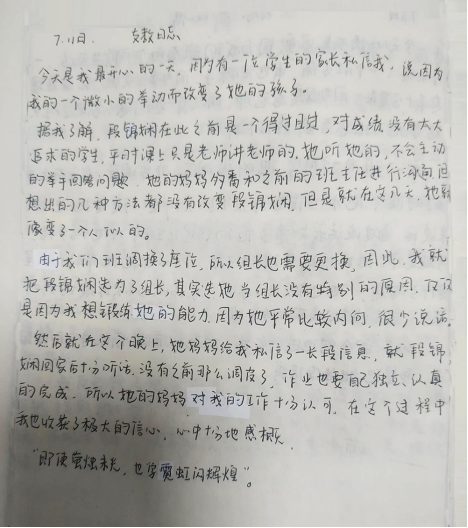 7.11日. 支教日志
今天是我最开心的一天,因为有一位学生的家长私信我,说因为
我的一个微小的举动而改变了她的孩子。
据我了解,段锦娴在此之前是一个得过且过,对成绩没有太大
追求的学生,平时课上只是老师讲老师的,她听她的,不会主动
的举手回答问题.她的妈妈多番和之前的班主任进行沟通但
想出的几种方法都没有改变段锦娴,但是就在这几天,她就
像变了一个人似的。
由于我们班调换了座位,所以组长也需要更换,因此,我就
把段锦娴选为了组长,其实选她当组长没有特别的原因,仅仅
是因为我想锻炼她的能力.因为她平常比较内向,很少说话.
然后就在这个晚上,她妈妈给我私信了一长段信息,就段锦
娴回家后十分听话.没有之前那么调皮了,作业也要自己独立、认真
的完成.所以她的妈妈对我的工作十分认可,在这个过程中
我也收获了极大的信心,心中十分地感概.
“即使萤烛末光,也穿霓虹闪辉煌”。